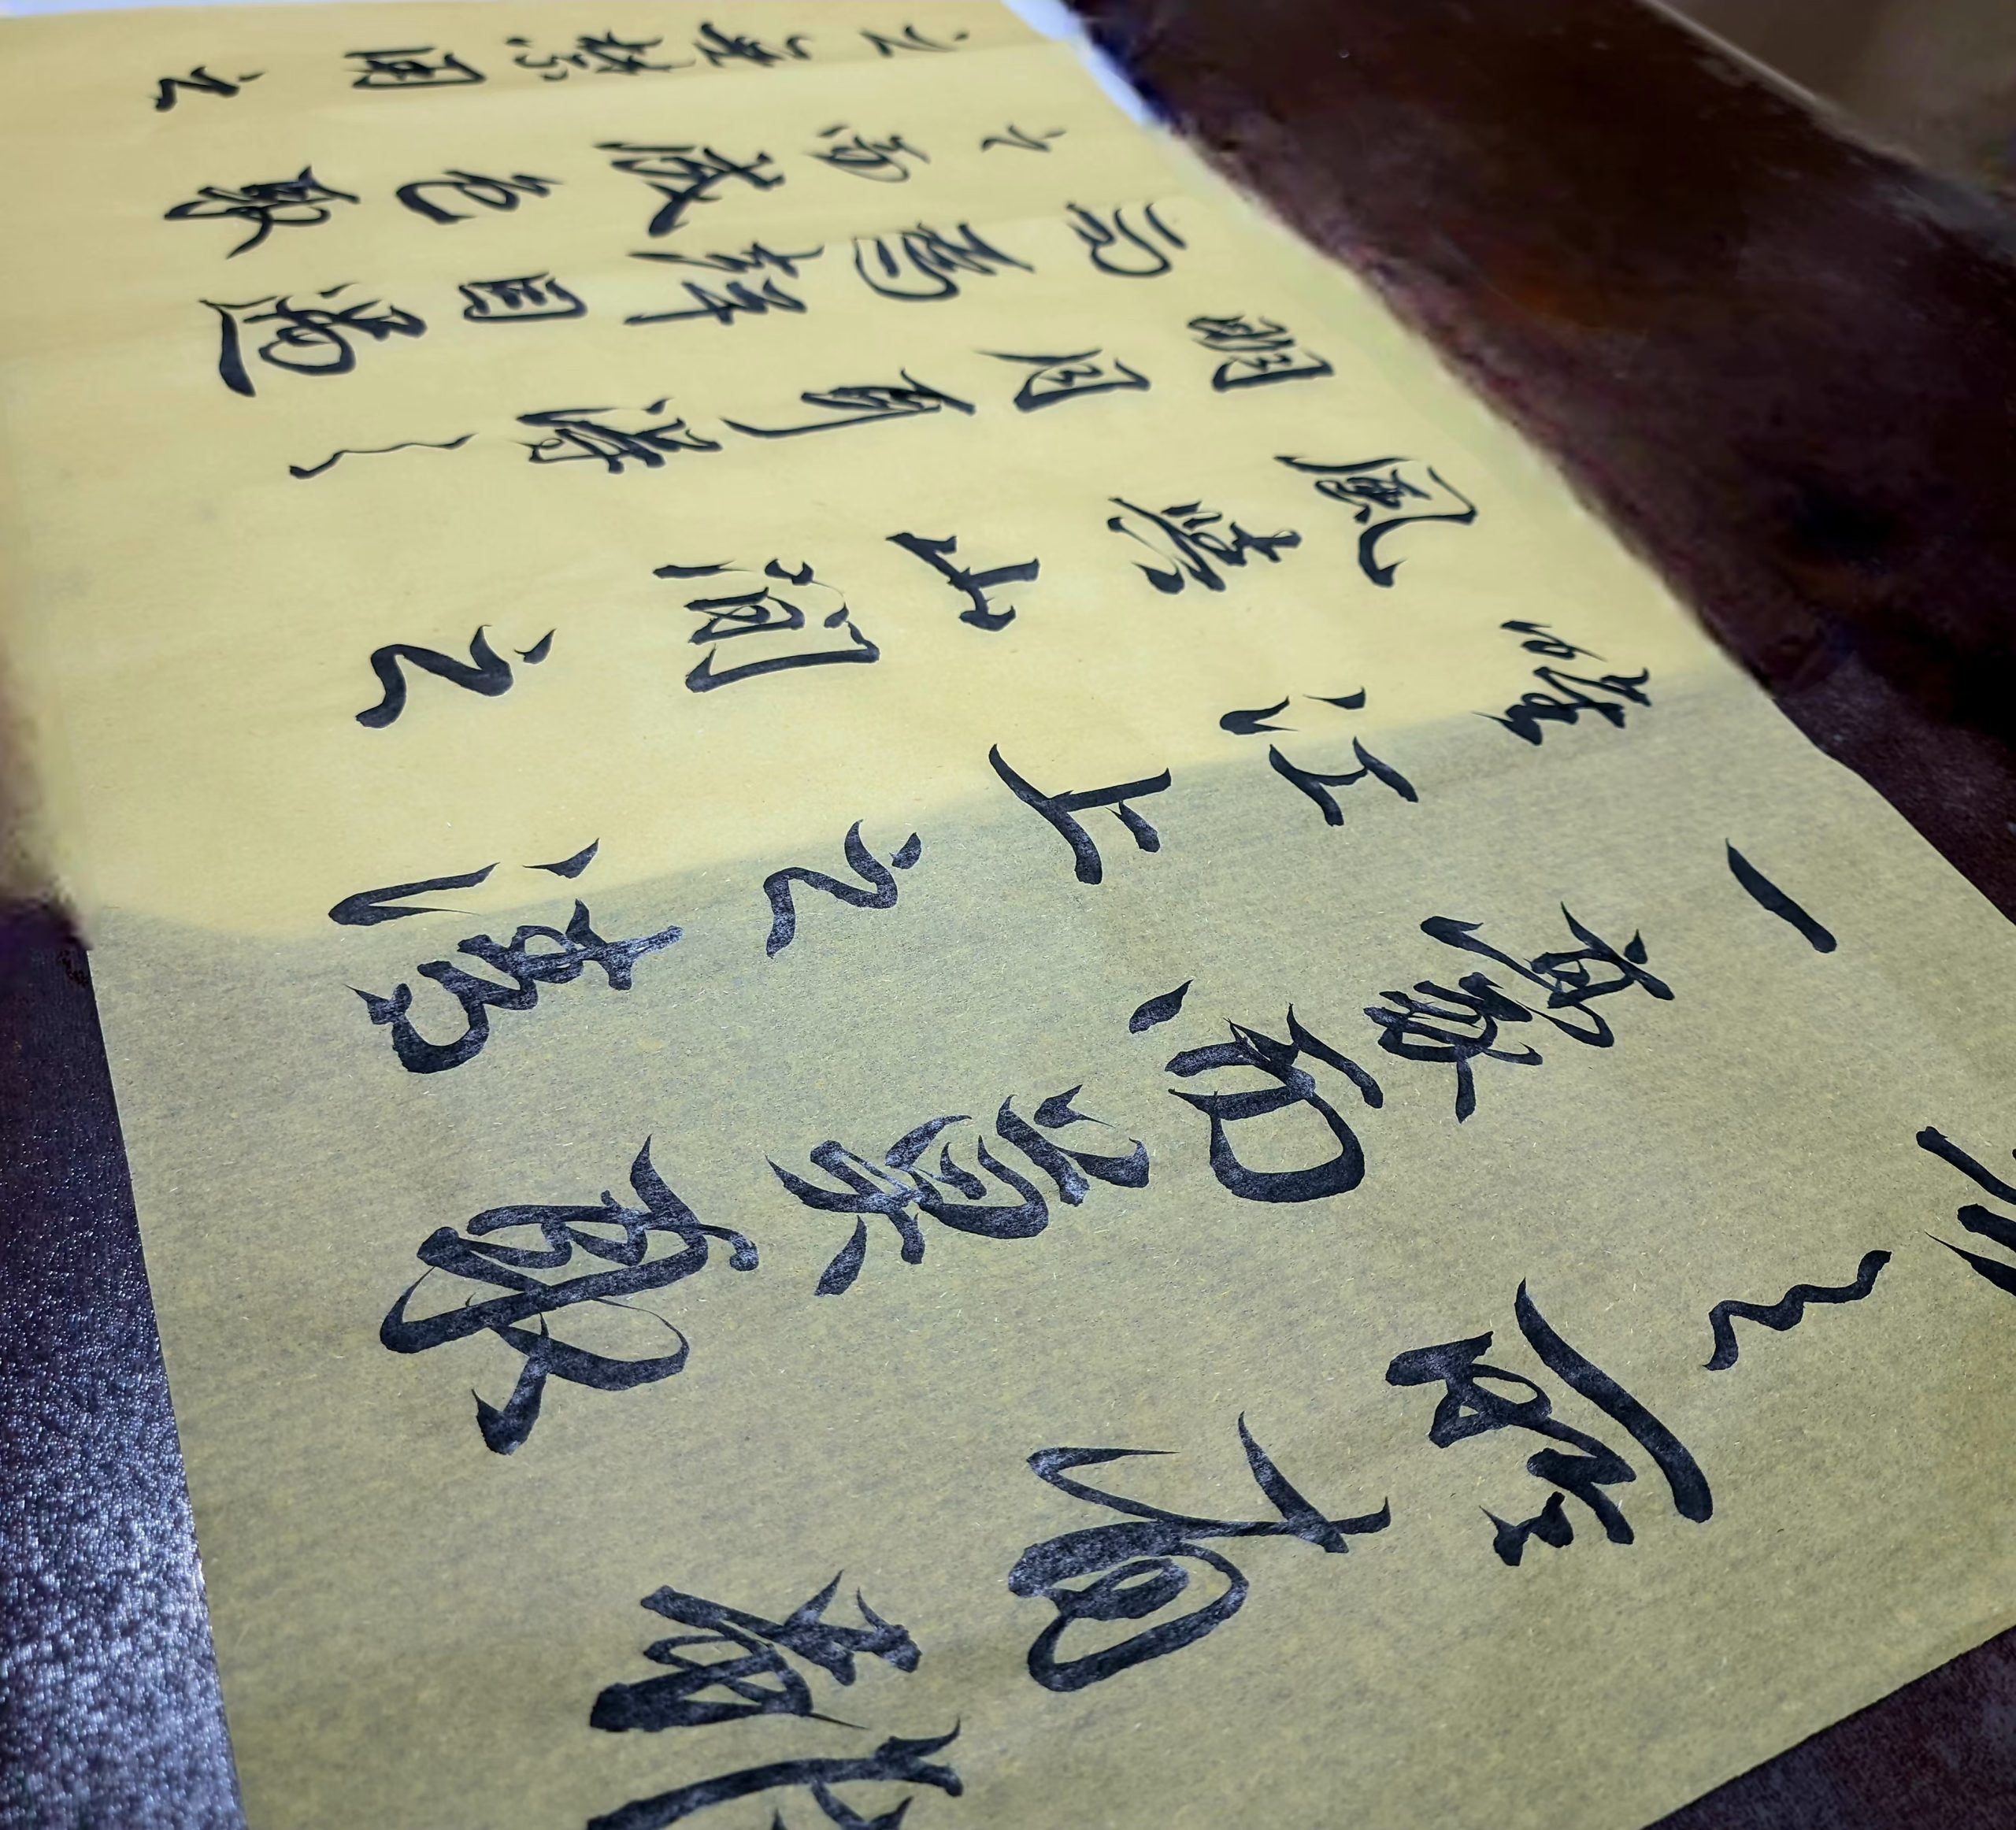 之所有雖
一毫而莫取
惟江上之清
風與山間之
明月耳得之
而為聲目遇
之而成色取
之無禁用之